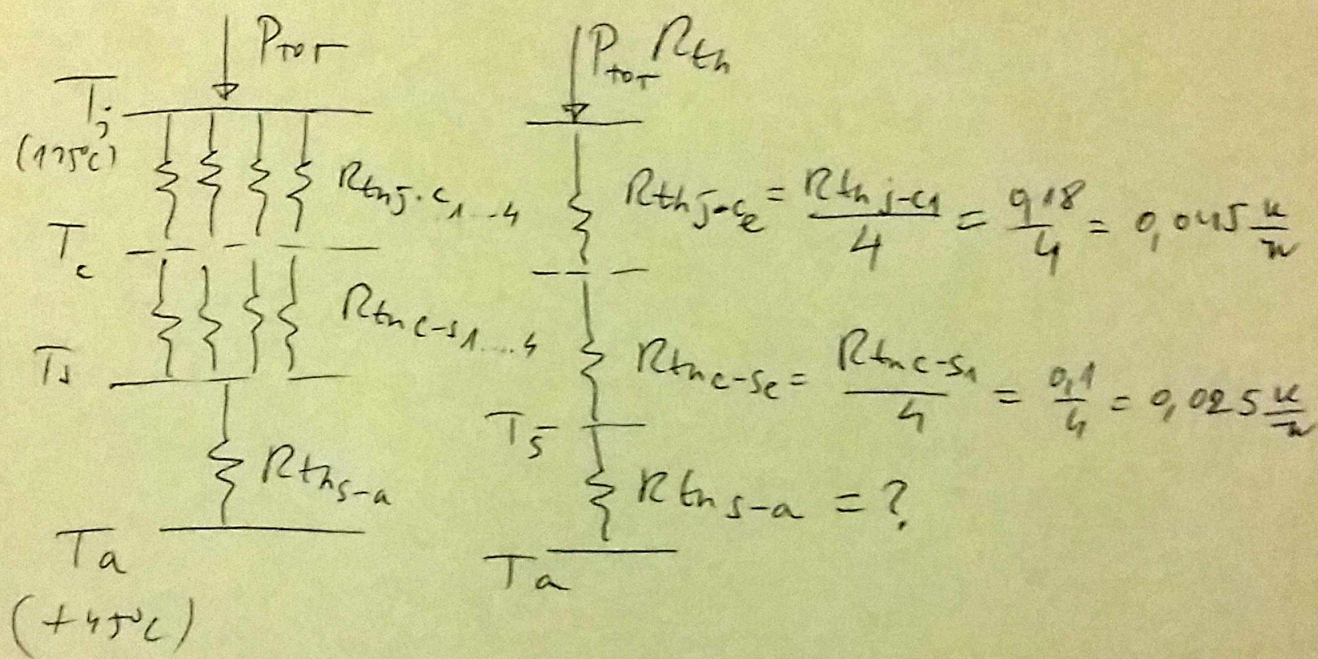 P_TOT
T_j
(125°C)
R_th j-c 1...4
T_c
R_th c-s 1...4
T_s
R_th s-a
T_a
(+45°C)
P_TOT R_th
R_th j-c_e = R_th j-c1 / 4 = 0,18 / 4 = 0,045 K/W
R_th c-s_e = R_th c-s1 / 4 = 0,1 / 4 = 0,025 K/W
T_s
R_th s-a = ?
T_a